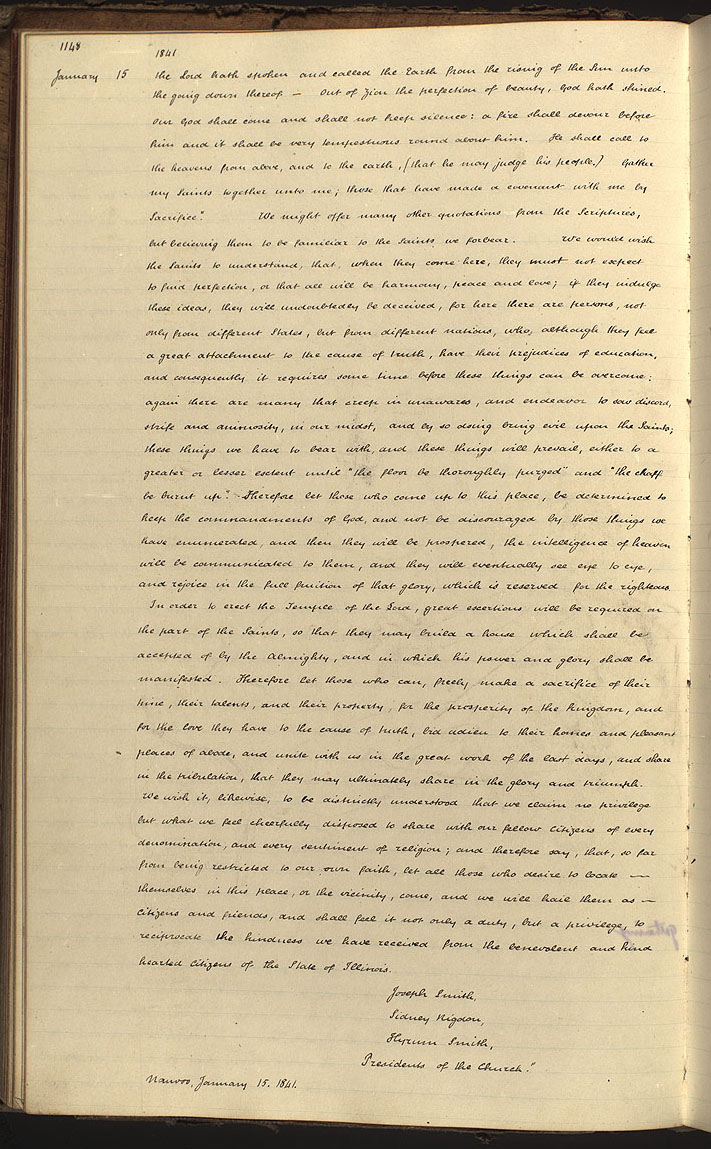 1148
1841
January 15 the Lord hath spoken and called the Earth from the rising of the Sun unto
the going down thereof — Out of Zion the perfection of beauty, God hath shined.
Our God shall come and shall not keep silence: a fire shall devour before
him and it shall be very tempestuous round about him. He shall call to
the heavens from above, and to the earth, (that he may judge his people.) Gather
my Saints together unto me; those that have made a covenant with me by
Sacrifice". We might offer many other quotations from the Scriptures,
but believing them to be familiar to the Saints we forbear. We would wish
the Saints to understand, that, when they come here, they must not expect
to find perfection, or that all will be harmony, peace and love; if they indulge
these ideas, they will undoubtedly be deceived, for here there are persons, not
only from different States, but from different nations, who, although they feel
a great attachment to the cause of truth, have their prejudices of education,
and consequently it requires some time before these things can be overcome;
again there are many that creep in unawares, and endeavor to sow discord,
strife and animosity, in our midst, and by so doing bring evil upon the Saints;
these things we have to bear with, and these things will prevail, either to a
greater or lesser extent until "the floor be thoroughly purged" and "the chaff
be burnt up." Therefore let those who come up to this place, be determined to
keep the commandments of God, and not be discouraged by those things we
have enumerated, and then they will be prospered, the intelligence of heaven
will be communicated to them, and they will eventually see eye to eye,
and rejoice in the full fruition of that glory, which is reserved for the righteous.
In order to erect the Temple of the Lord, great exertions will be required on
the part of the Saints, so that they may build a house which shall be
accepted of by the Almighty, and in which his power and glory shall be
manifested. Therefore let those who can, freely make a sacrifice of their
time, their talents, and their property, for the prosperity of the Kingdom, and
for the love they have to the cause of truth, bid adieu to their homes and pleasant
places of abode, and unite with us in the great work of the last days, and share
in the tribulation, that they may ultimately share in the glory and triumph.
We wish it, likewise, to be distinctly understood that we claim no privilege
but what we feel cheerfully disposed to share with our fellow Citizens of every
denomination, and every sentiment of religion; and therefore say, that, so far
from being restricted to our own faith, let all those who desire to locate —
themselves in this place, or the vicinity, come, and we will hail them as —
Citizens and friends, and shall feel it not only a duty, but a privilege, to
reciprocate the kindness we have received from the benevolent and kind
hearted Citizens of the State of Illinois.
Joseph Smith,
Sidney Rigdon,
Hyrum Smith,
Presidents of the Church."
Nauvoo, January 15. 1841.